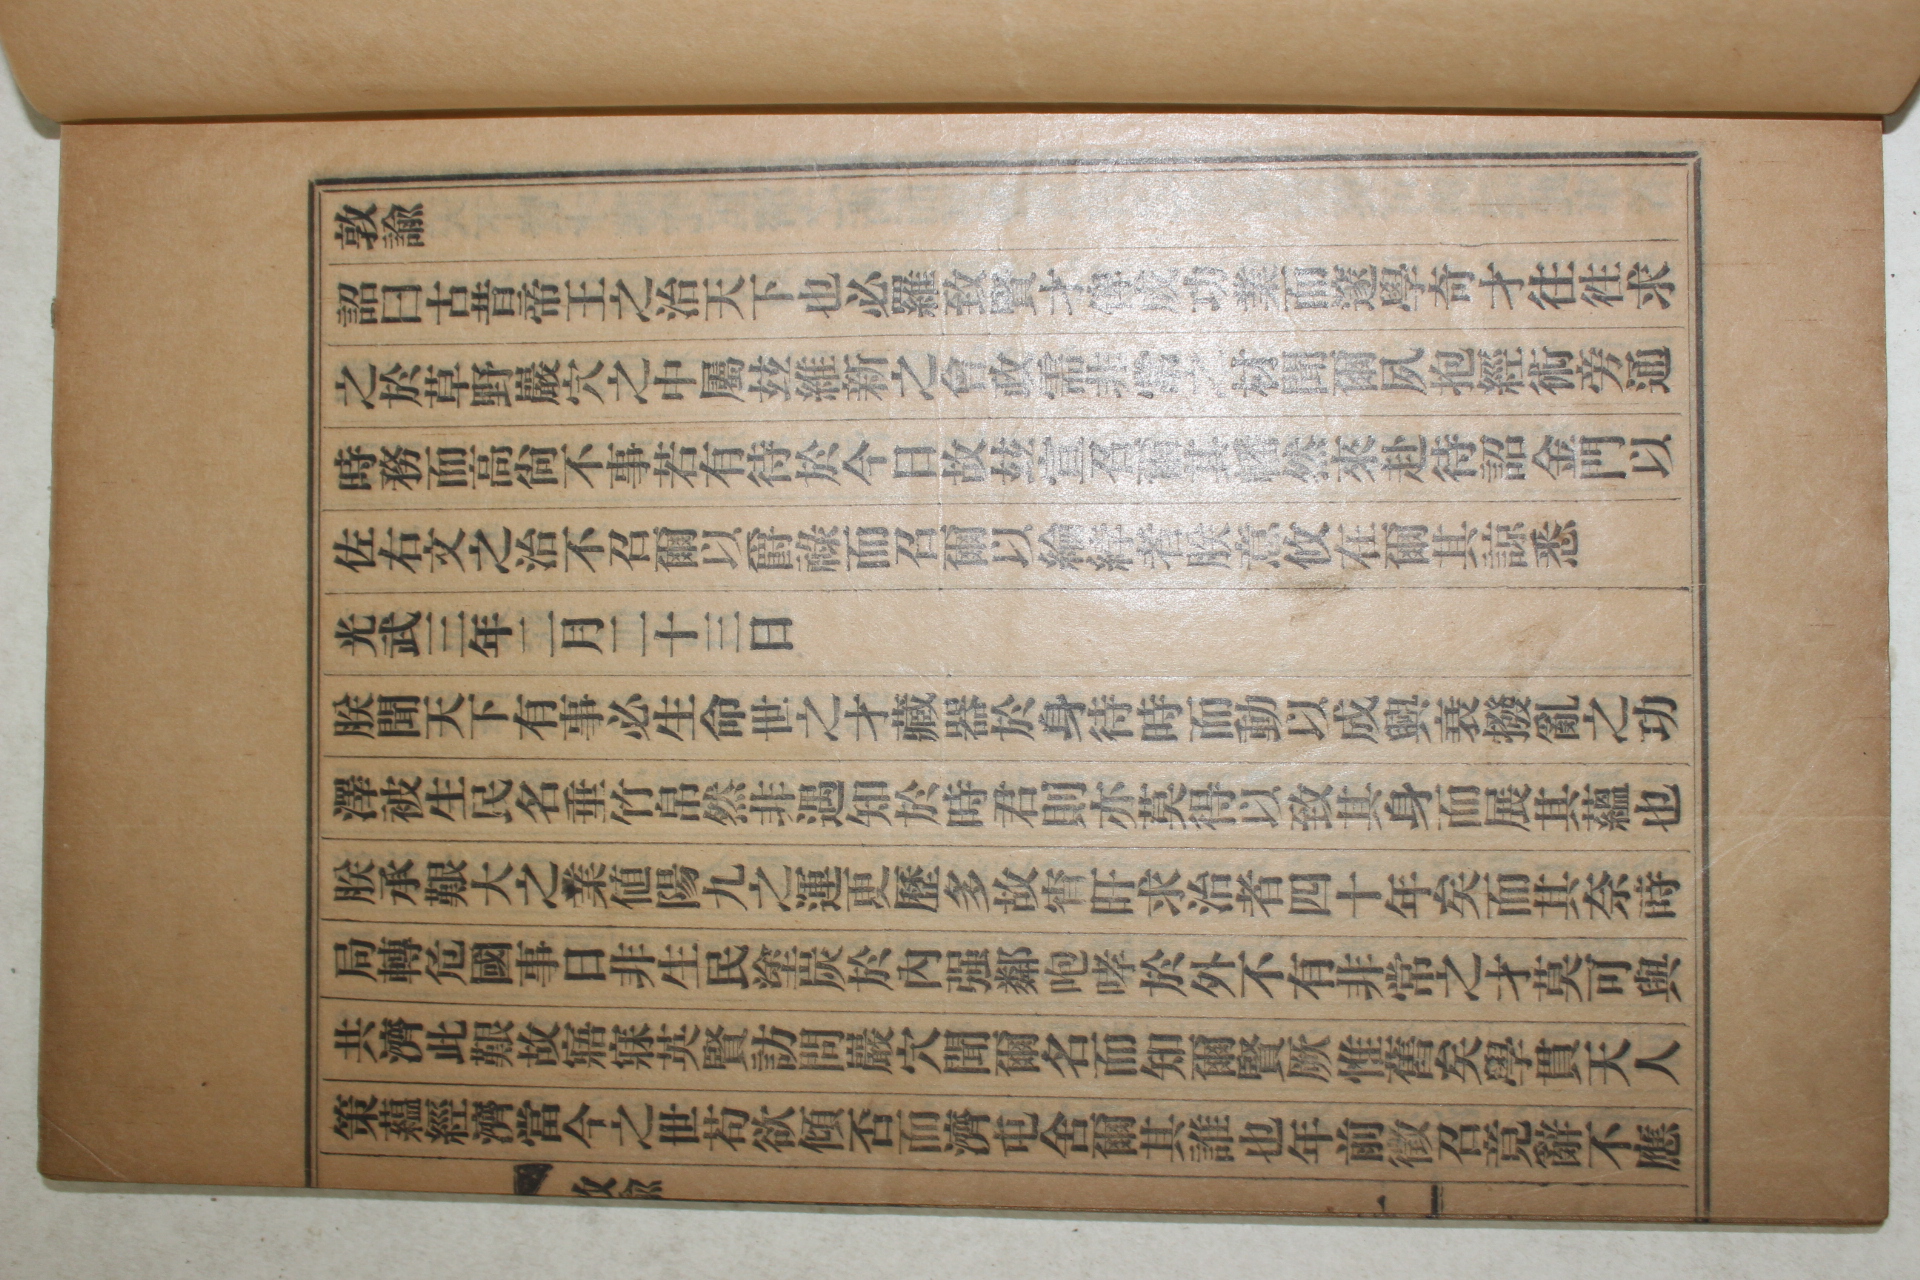 敦諭
詔曰古昔帝王之治天下也必羅致賢才 功業而邃學奇才往往求
之於草野巖穴之中屬玆維新之會政 非 材聞爾夙抱經術旁通
時務而高尙不事若有待於今日故玆 召爾其 然來赴待詔金門以
佐右文之治不召爾以爵祿而召爾以 者朕意攸在爾其諒悉
光武三年二月二十三日
朕聞天下有事必生命世之才藏器於身待時而動以成興衰撥亂之功
澤被生民名垂竹帛然非遇知於時君則亦莫得以致其身而展其蘊也
朕承艱大之業値陽九之運更歷多故宵旰求治者四十年矣而其奈時
局轉危國事日非生民塗炭於內强鄰咆哮於外不有非常之才莫可與
共濟此艱故寤寐英賢訪問巖穴聞爾名而知爾賢厥惟舊矣學貫天人
策蘊經濟當今之世苟欲傾否而濟屯舍爾其誰也年前徵召竟辭不應
敦諭
一